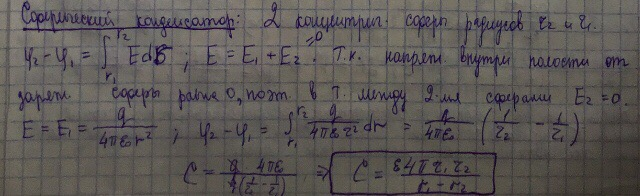 Сферический конденсатор: 2 концентрич. сферы радиусов r₂ и r₁.
φ₂-φ₁ = ∫_{r₁}^{r₂} EdS ; E = E₁ + E₂^{=0} . Т.к. напряж внутри полости от
заряж сферы равна 0, поэт. в т. между 2-мя сферами E₂ = 0.
E = E₁ = q/4πε₀r² ; φ₂ - φ₁ = ∫_{r₁}^{r₂} q/4πε₀r² dr = q/4πε₀ (1/r₂ - 1/r₁)
C = q 4πε₀/q(1/r₂ - 1/r₁) ⇒ C = ε4π r₁ r₂/r₁ - r₂